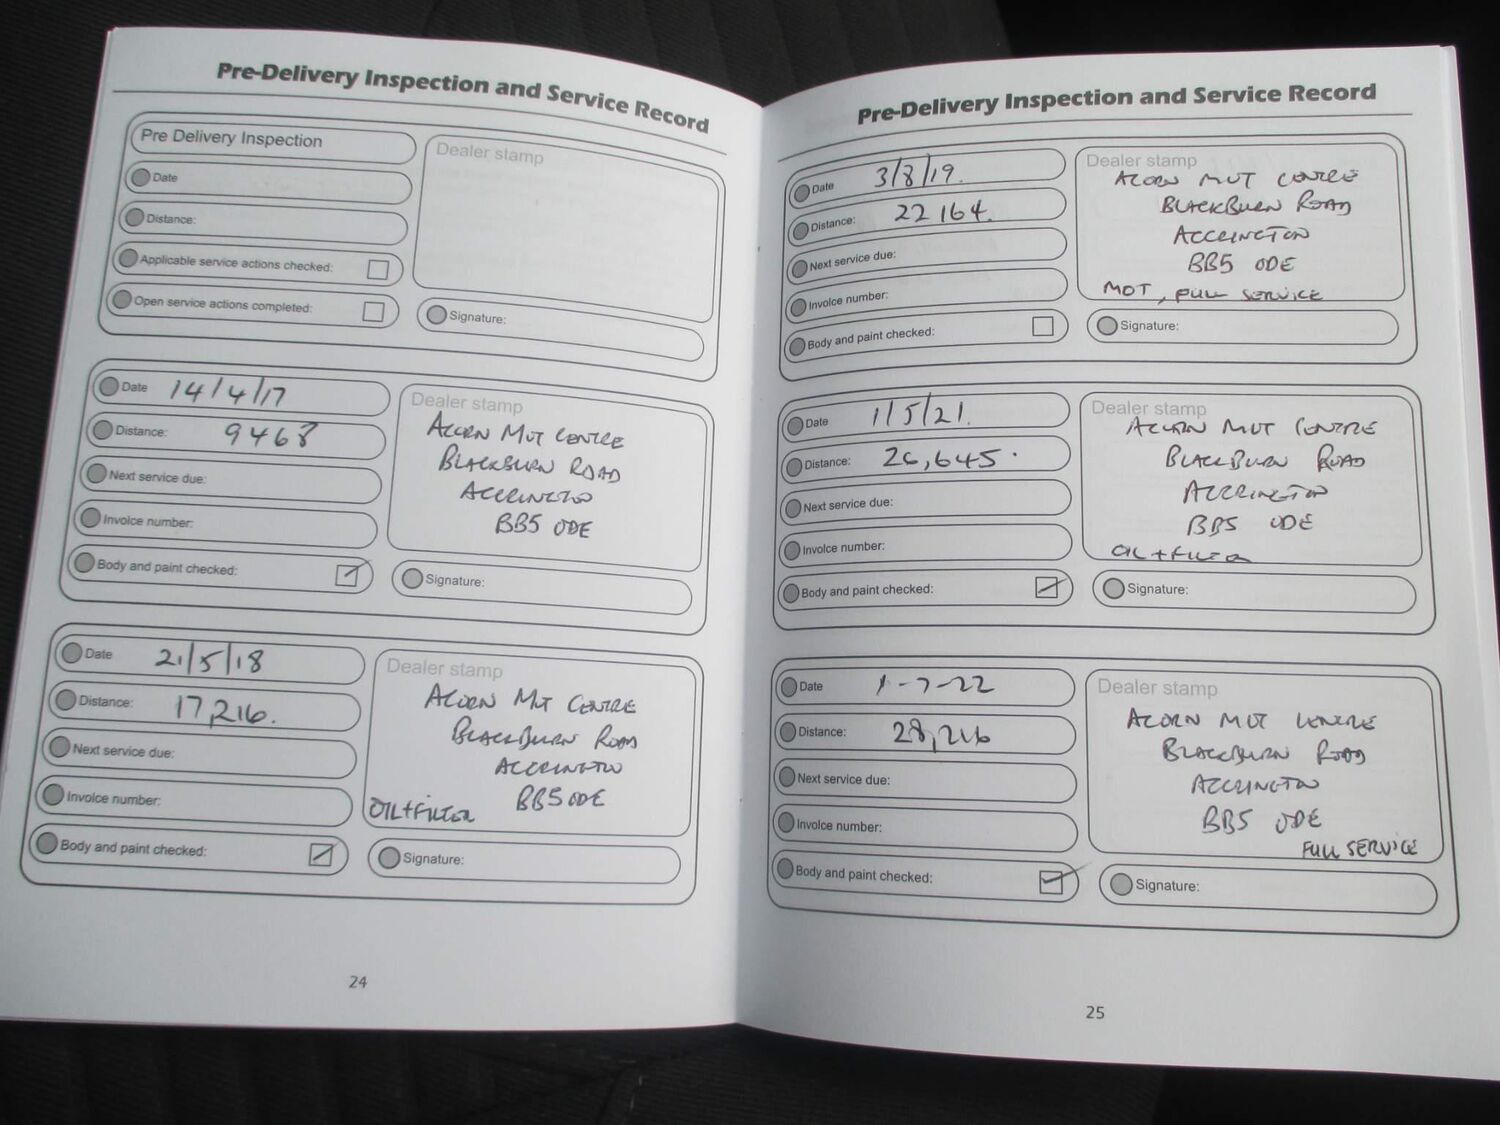 Pre-Delivery Inspection and Service Record
Pre Delivery Inspection
Date
Distance:
Applicable service actions checked:
Open service actions completed:
Dealer stamp
Signature:
Date 14/4/17
Distance: 9468
Next service due:
Invoice number:
Body and paint checked:
Dealer stamp
ACORN MOT CENTRE
BLACKBURN ROAD
ACCRINGTON
BB5 0DE
Signature:
Date 21/5/18
Distance: 17,216.
Next service due:
Invoice number:
Body and paint checked:
Dealer stamp
ACORN MOT CENTRE
BLACKBURN ROAD
ACCRINGTON
BB5 0DE
OIL+FILTER
Signature:
24
Pre-Delivery Inspection and Service Record
Date 3/8/19.
Distance: 22164.
Next service due:
Invoice number:
Body and paint checked:
Dealer stamp
ACORN MOT CENTRE
BLACKBURN ROAD
ACCRINGTON
BB5 0DE
MOT, FULL SERVICE
Signature:
Date 1/5/21.
Distance: 26,645.
Next service due:
Invoice number:
Body and paint checked:
Dealer stamp
ACORN MOT CENTRE
BLACKBURN ROAD
ACCRINGTON
BB5 0DE
OIL+FILTER
Signature:
Date 1-7-22
Distance: 28,216
Next service due:
Invoice number:
Body and paint checked:
Dealer stamp
ACORN MOT CENTRE
BLACKBURN ROAD
ACCRINGTON
BB5 0DE
FULL SERVICE
Signature:
25